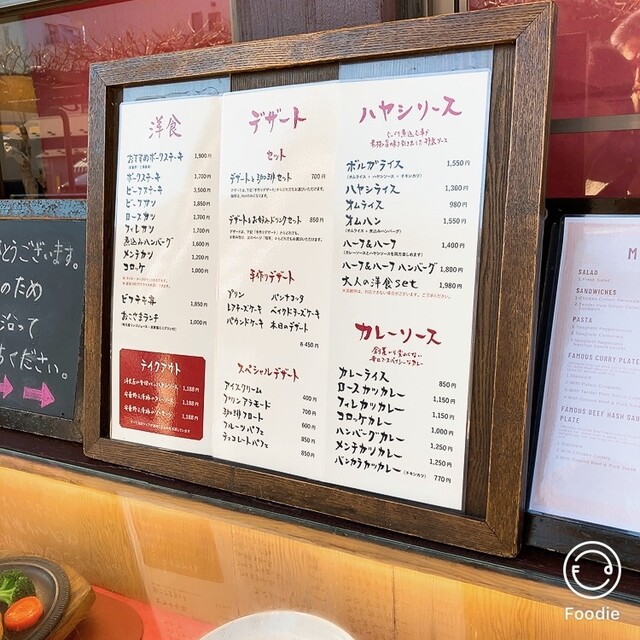 とうございます。
のため
沿って
ちください。
洋食
おすすめポークステーキ 1,900円
ポークステーキ 1,700円
ビーフステーキ 3,500円
ビーフカツ 1,850円
ロースカツ 1,700円
フィレカツ 1,700円
煮込みハンバーグ 1,600円
メンチカツ 1,200円
コロッケ 1,000円
ビフテキ丼 1,850円
おこさまランチ 1,000円
テイクアウト
1,188円
1,188円
1,188円
デザート
セット
デザートと珈琲セット 700円
デザートとお好みドリンクセット 850円
手作りデザート
プリン パンナコッタ
レアチーズケーキ ベイクドチーズケーキ
パウンドケーキ 本日のデザート
各450円
スペシャルデザート
アイスクリーム 400円
プリンアラモード 700円
珈琲フロート 700円
フルーツパフェ 850円
チョコレートパフェ 850円
ハヤシソース
ボルガライス 1,550円
(オムライス+ハヤシソース+チキンカツ)
ハヤシライス 1,300円
オムライス 980円
オムハン 1,550円
(オムライス+煮込みハンバーグ)
ハーフ&ハーフ 1,400円
(カレーソースとハヤシソースを両方楽しめます)
ハーフ&ハーフ ハンバーグ 1,800円
大人の洋食set 1,980円
カレーソース
カレーライス 850円
ロースカツカレー 1,150円
フィレカツカレー 1,150円
コロッケカレー 1,000円
ハンバーグカレー 1,250円
メンチカツカレー 1,250円
バンカラカツカレー (チキンカツ) 770円
M
SALAD
SANDWICHES
PASTA
FAMOUS CURRY PLATE
FAMOUS BEEF HASH SAUCE
PLATE
Foodie